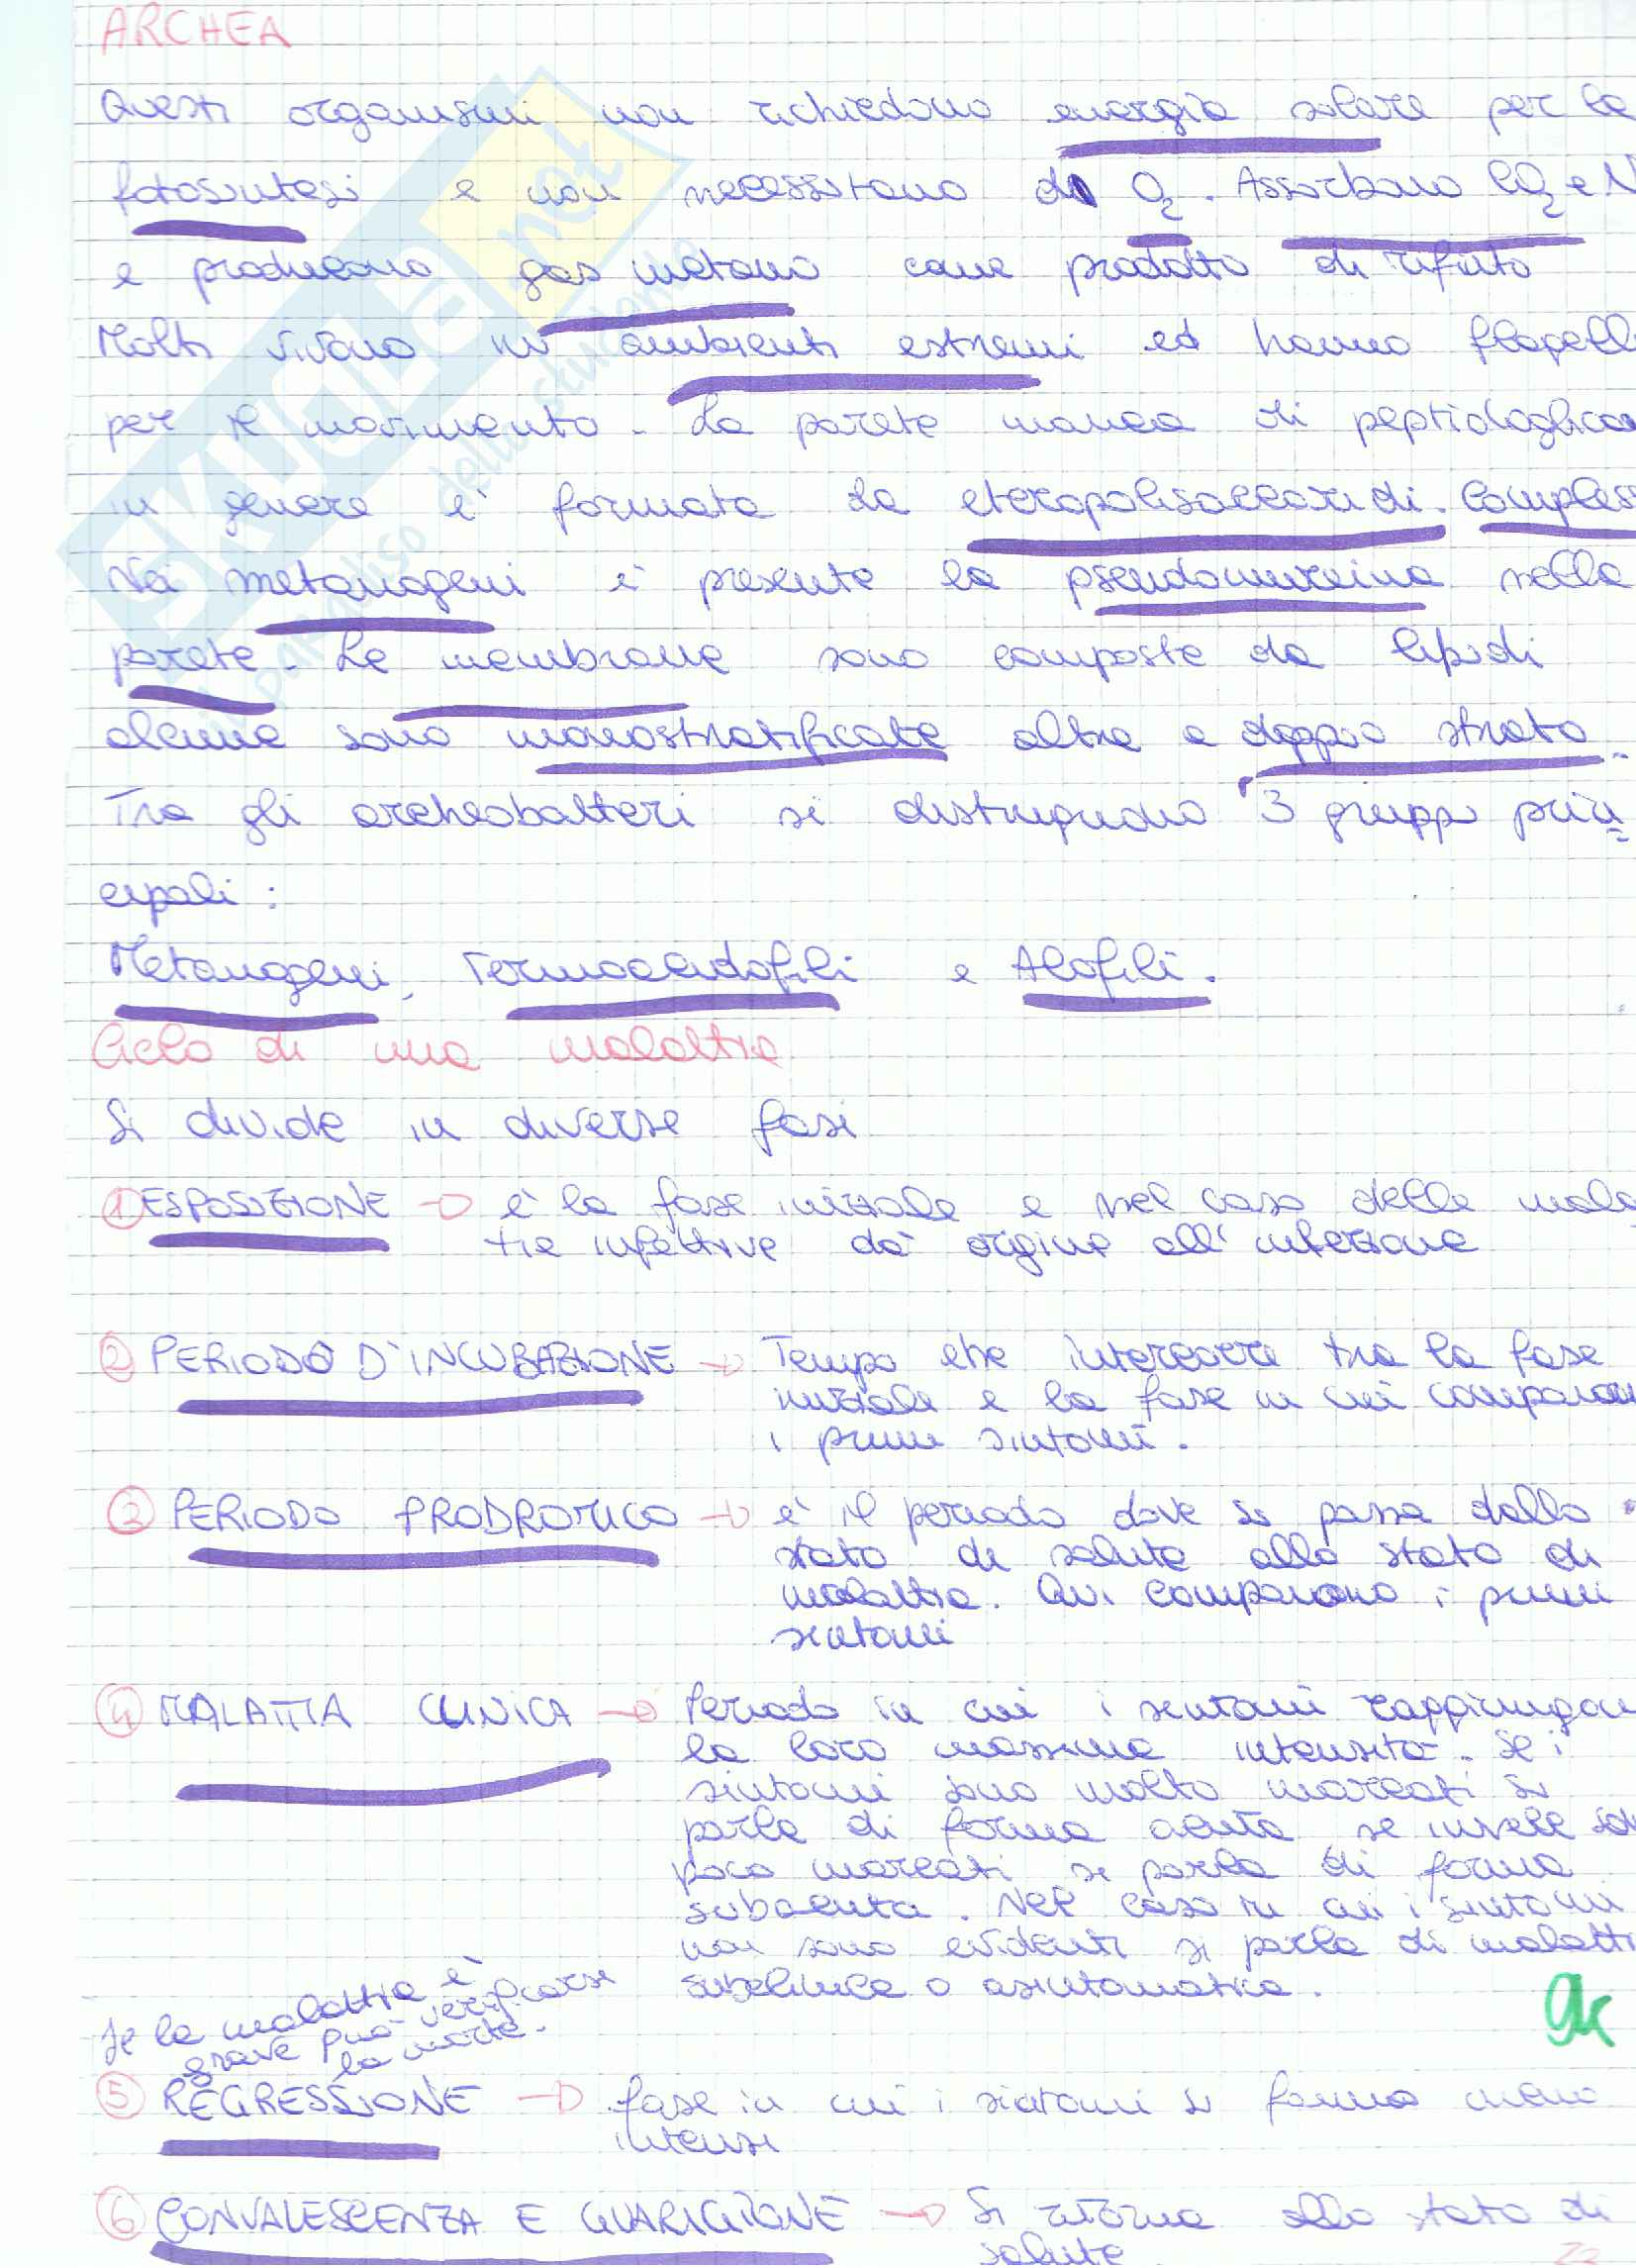 ARCHEA
Questi organismi non richiedono energia solare per la
fotosintesi e non necessitano di O2. Assorbono CO2 e N
e producono gas metano come prodotto di rifiuto
Molti vivono in ambienti estremi ed hanno flagell
per il movimento. La parete manca di peptidoglica
in genere è formata da eteropolisaccaridi. Compless
Nei metanogeni è presente la pseudomureina nella
parete. Le membrane sono composte da lipidi
alcune sono monostratificate altre a doppio strato.
Tra gli archeobatteri si distinguono 3 gruppi prin
cipali:
Metanogeni, Termoacidofili e Alofili.
Ciclo di una malattia
Si divide in diverse fasi
1 ESPOSIZIONE → è la fase iniziale e nel caso delle mala
tie infettive dà origine all'infezione
2 PERIODO D'INCUBAZIONE → Tempo che intercorre tra la fase
iniziale e la fase in cui compaiono
i primi sintomi.
3 PERIODO PRODROMICO → è il periodo dove si passa dallo
stato di salute allo stato di
malattia. Qui compaiono i primi
sintomi
4 MALATTIA CLINICA → Periodo in cui i sintomi raggiungon
la loro massima intensità. Se i
sintomi sono molto marcati si
parla di forma acuta, se invece so
poco marcati si parla di forma
subacuta. Nel caso in cui i sintomi
non sono evidenti si parla di malatti
subclinica o asintomatica.
Se la malattia è
grave può verificarsi
la morte.
5 REGRESSIONE → fase in cui i sintomi si fanno meno
intensi
6 CONVALESCENZA E GUARIGIONE → Si ritorna allo stato di
salute
22
SKUOLA.net
il paradiso dello studente